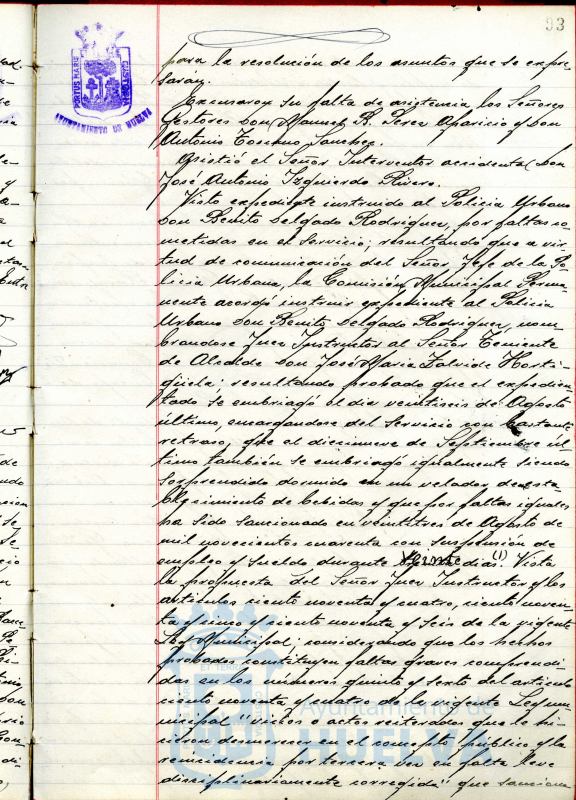 93
PORTUS MARIS ET TERRAE CUSTODIA
AYUNTAMIENTO DE HUELVA
para la resolución de los asuntos que se expre-
saran.
Excusaron su falta de asistencia los Señores
Gestores Don Manuel R. Perez Aparicio y Don
Antonio Toscano Sanchez.
Asistió el Señor Interventor accidental Don
José Antonio Izquierdo Rivero.
Visto expediente instruido al Policia Urbano
Don Benito Delgado Rodriguez, por faltas co-
metidas en el Servicio; resultando que a vir-
tud de comunicación del Señor Jefe de la Po-
licia Urbana, la Comisión Municipal Perma-
nente acordó instruir expediente al Policia
Urbano Don Benito Delgado Rodriguez, nom-
brandose Juez Instructor al Señor Teniente
de Alcalde Don José Maria Zalvide Horti-
güela; resultando probado que el expedien-
tado se embriagó el dia veintiseis de Agosto
último, encargandose del Servicio con bastante
retraso, que el diecinueve de Septiembre úl-
timo también se embriagó igualmente siendo
sorprendido dormido en un velador de esta-
blecimiento de bebidas y que por faltas iguales
ha sido sancionado en veintitres de Agosto de
mil novecientos cuarenta con suspensión de
empleo y sueldo durante veinte dias (1). Vista
la propuesta del Señor Juez Instructor y los
articulos ciento noventa y cuatro, ciento noven-
ta y cinco y ciento noventa y seis de la vigente
Ley Municipal; considerando que los hechos
probados constituyen faltas graves comprendi-
das en los números quinto y sexto del articulo
ciento noventa y cuatro de la vigente Ley mu-
nicipal "vicios o actos reiterados que le hi-
cieran desmerecer en el concepto público y la
reincidencia por tercera vez en falta leve
disciplinariamente corregida" que sanciona
Ayuntamiento de
HUELVA